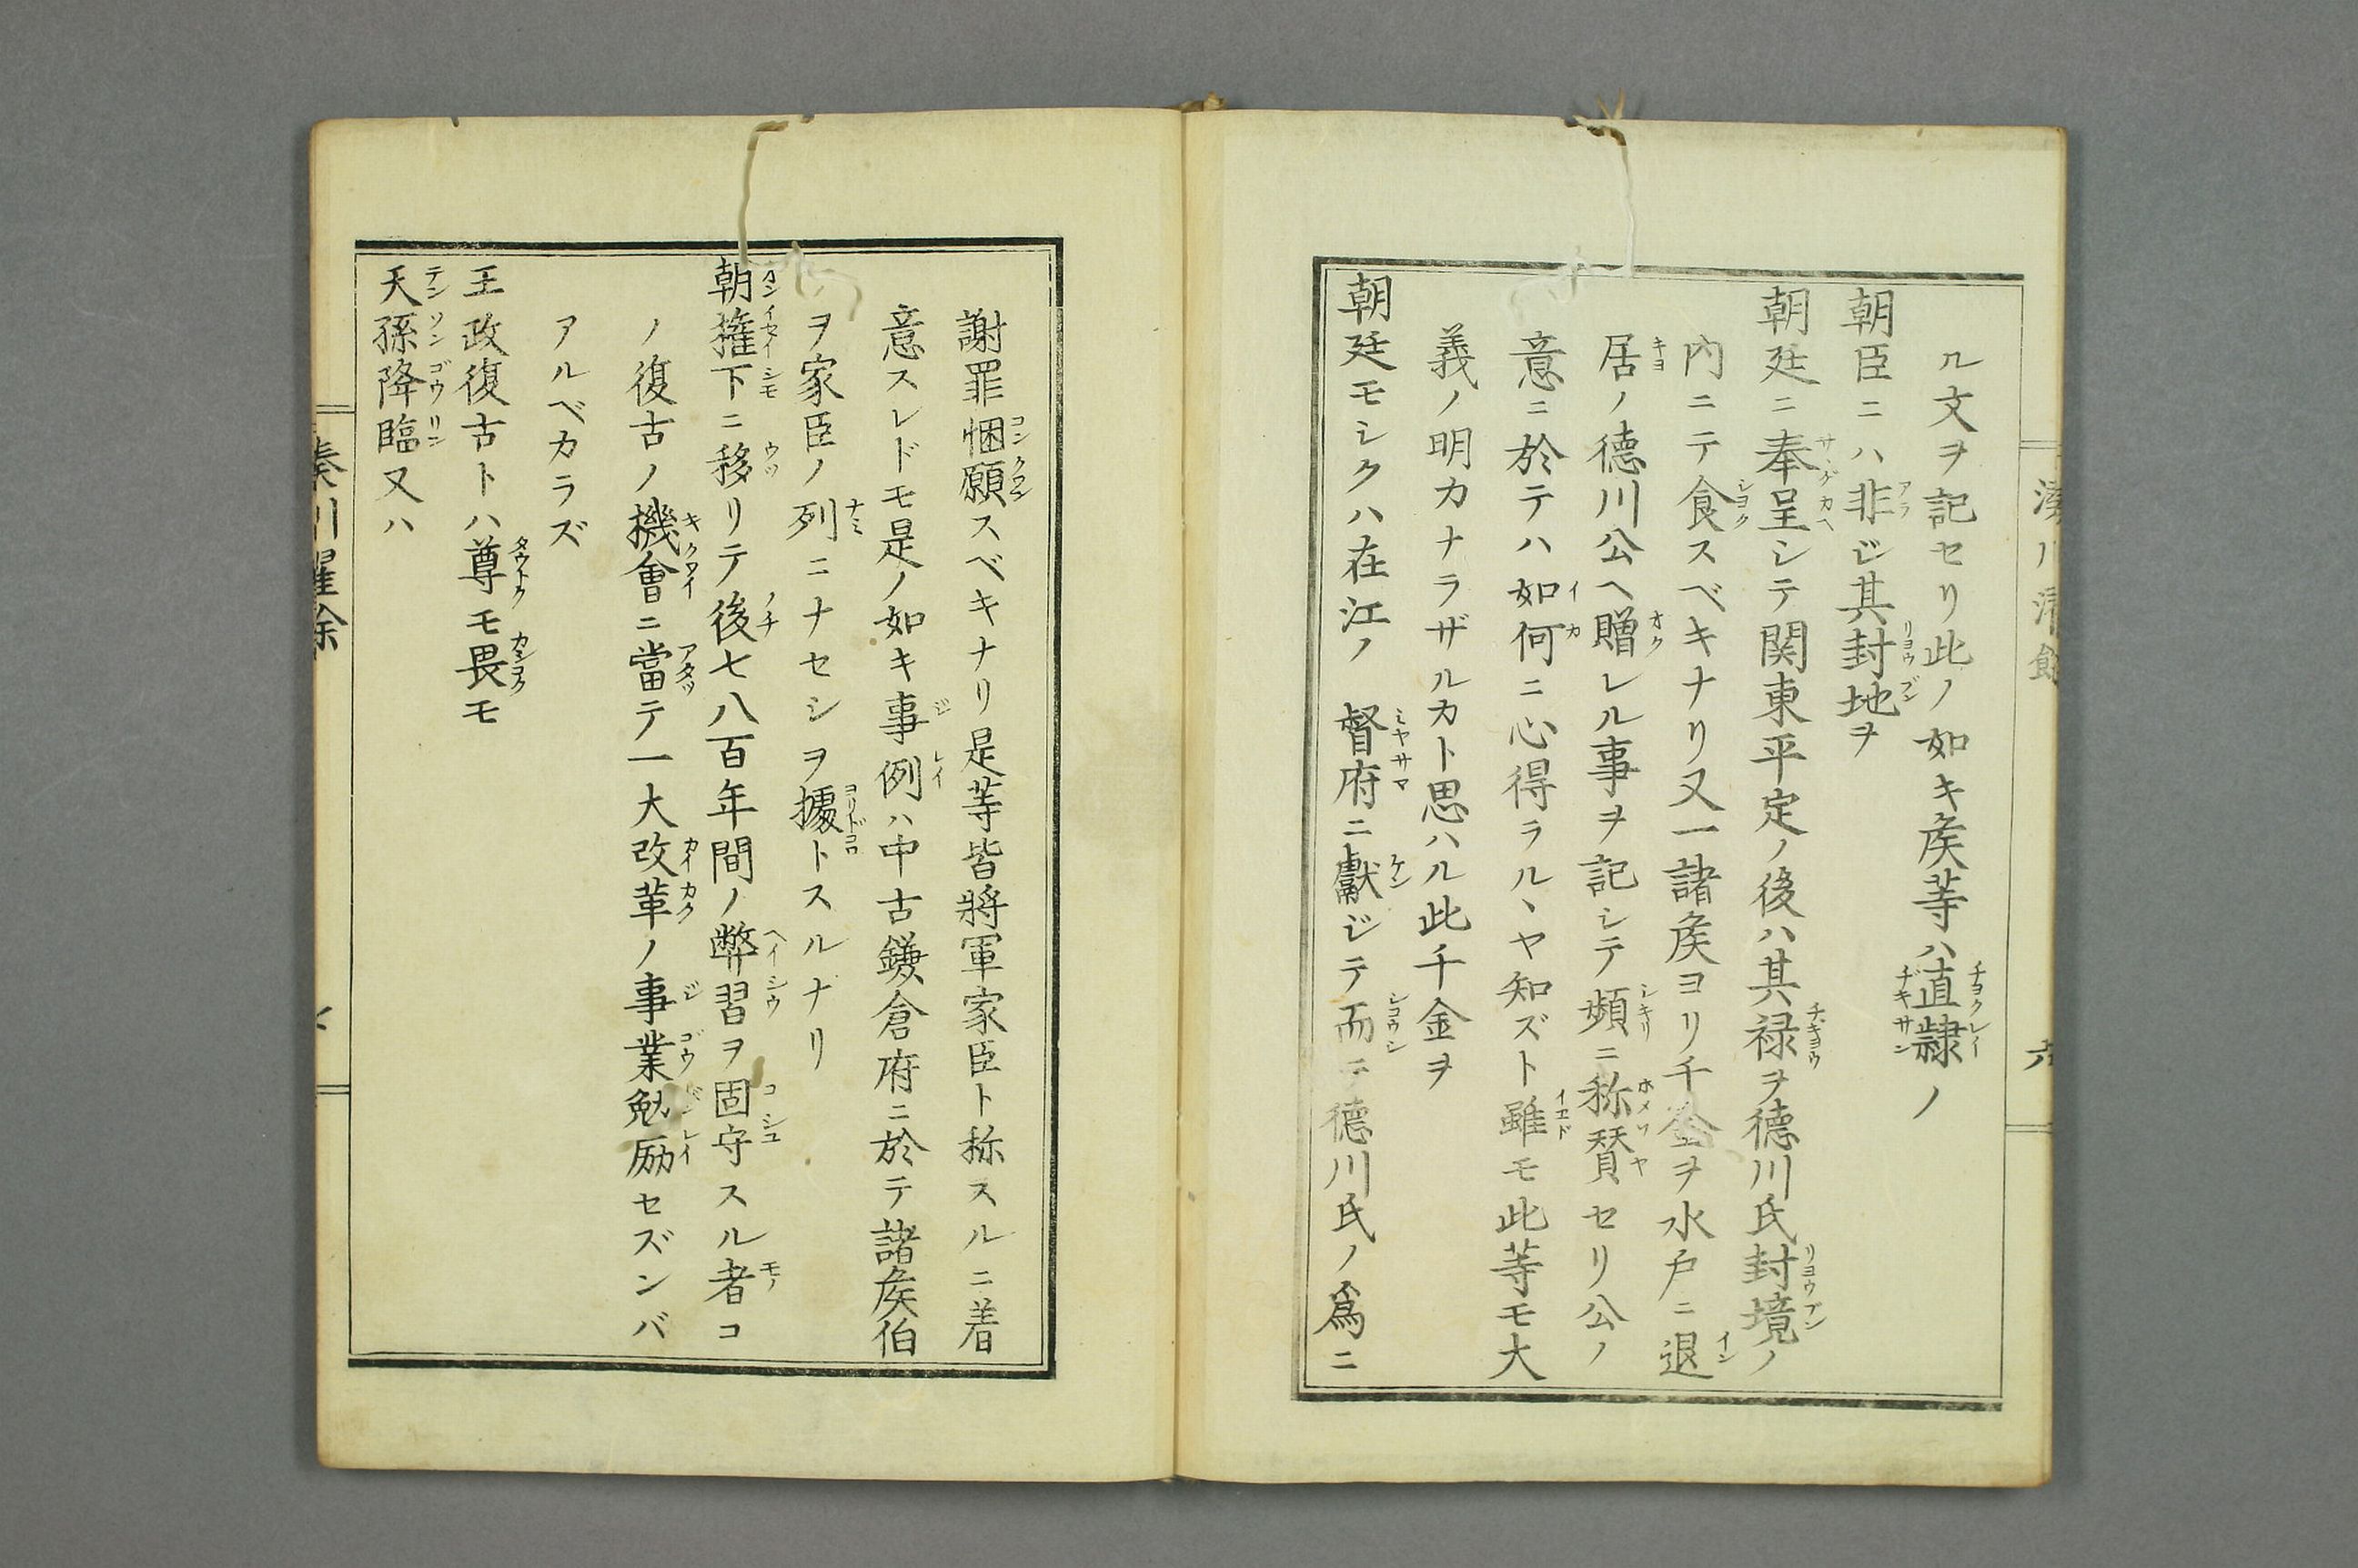 ル文ヲ記セリ此ノ如キ矦等ハ直隷ノ
朝臣ニハ非ジ其封地ヲ
朝廷ニ奉呈シテ関東平定ノ後ハ其禄ヲ德川氏封境ノ
内ニテ食スベキナリ又一諸矦ヨリ千金ヲ水戸ニ退
居ノ德川公ヘ贈レル事ヲ記シテ頻ニ称賛セリ公ノ
意ニ於テハ如何ニ心得ラルヽヤ知ズト雖モ此等モ大
義ノ明カナラザルカト思ハル此千金ヲ
朝廷モシクハ在江ノ　督府ニ獻ジテ而シテ德川氏ノ爲ニ
謝罪悃願スベキナリ是等皆將軍家臣ト称スルニ着
意スレドモ是ノ如キ事例ハ中古鎌倉府ニ於テ諸矦伯
ヲ家臣ノ列ニナセシヲ據トスルナリ
朝権下ニ移リテ後七八百年間ノ弊習ヲ固守スル者コ
ノ復古ノ機會ニ當テ一大改革ノ事業勉励セズンバ
アルベカラズ
王政復古トハ尊モ畏モ
天孫降臨又ハ